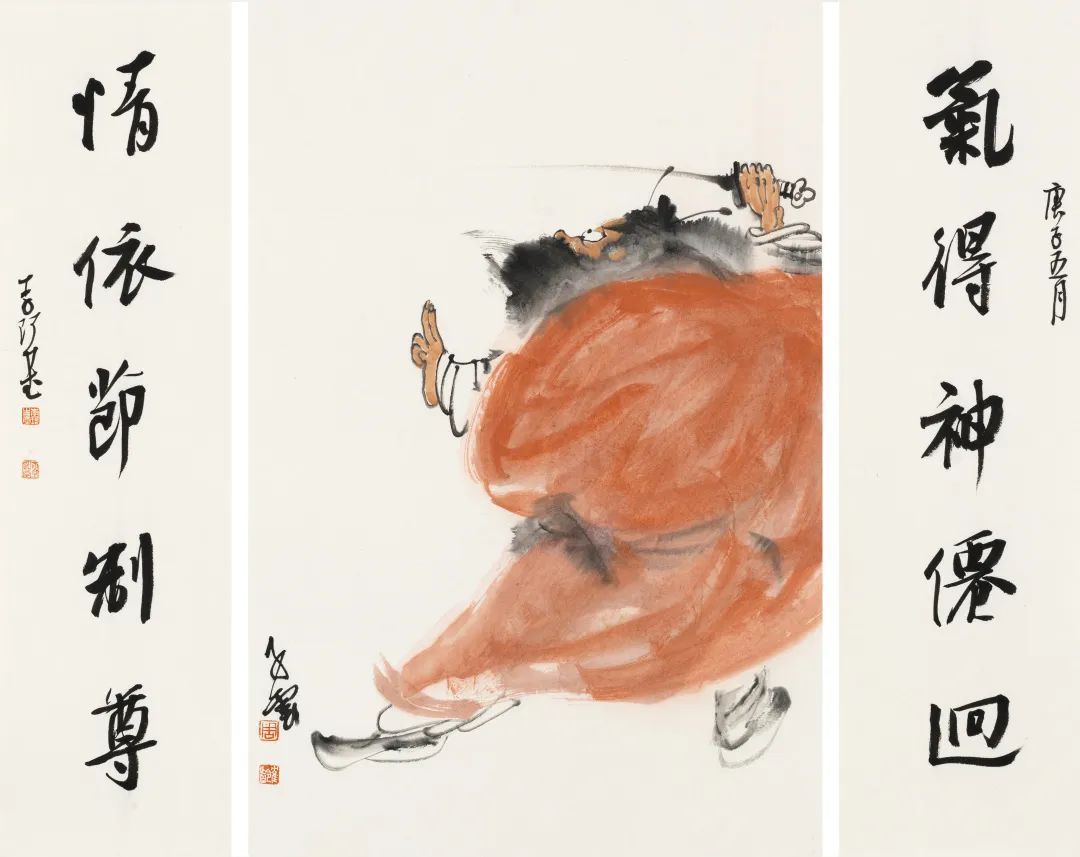 氣得神僊迥
庚子五月
情依節制尊